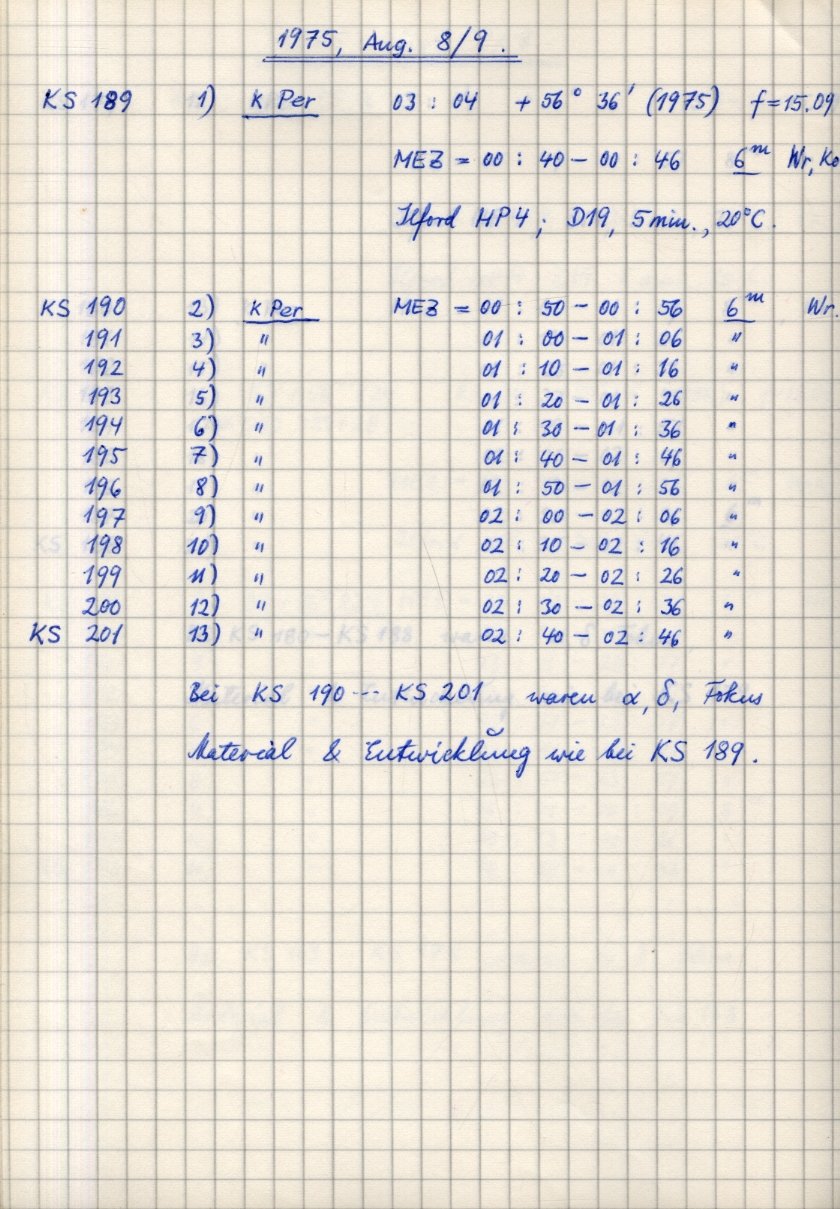 1975, Aug. 8/9.
KS 189 1) K Per 03 : 04 + 56° 36' (1975) f = 15.09
MEZ = 00 : 40 – 00 : 46 6m Wr, Ko
Ilford HP4 ; D19, 5 min., 20°C.
KS 190 2) K Per MEZ = 00 : 50 – 00 : 56 6m Wr.
191 3) " 01 : 00 – 01 : 06 "
192 4) " 01 : 10 – 01 : 16 "
193 5) " 01 : 20 – 01 : 26 "
194 6) " 01 : 30 – 01 : 36 "
195 7) " 01 : 40 – 01 : 46 "
196 8) " 01 : 50 – 01 : 56 "
197 9) " 02 : 00 – 02 : 06 "
198 10) " 02 : 10 – 02 : 16 "
199 11) " 02 : 20 – 02 : 26 "
200 12) " 02 : 30 – 02 : 36 "
KS 201 13) " 02 : 40 – 02 : 46 "
Bei KS 190 --- KS 201 waren α, δ, Fokus
Material & Entwicklung wie bei KS 189.